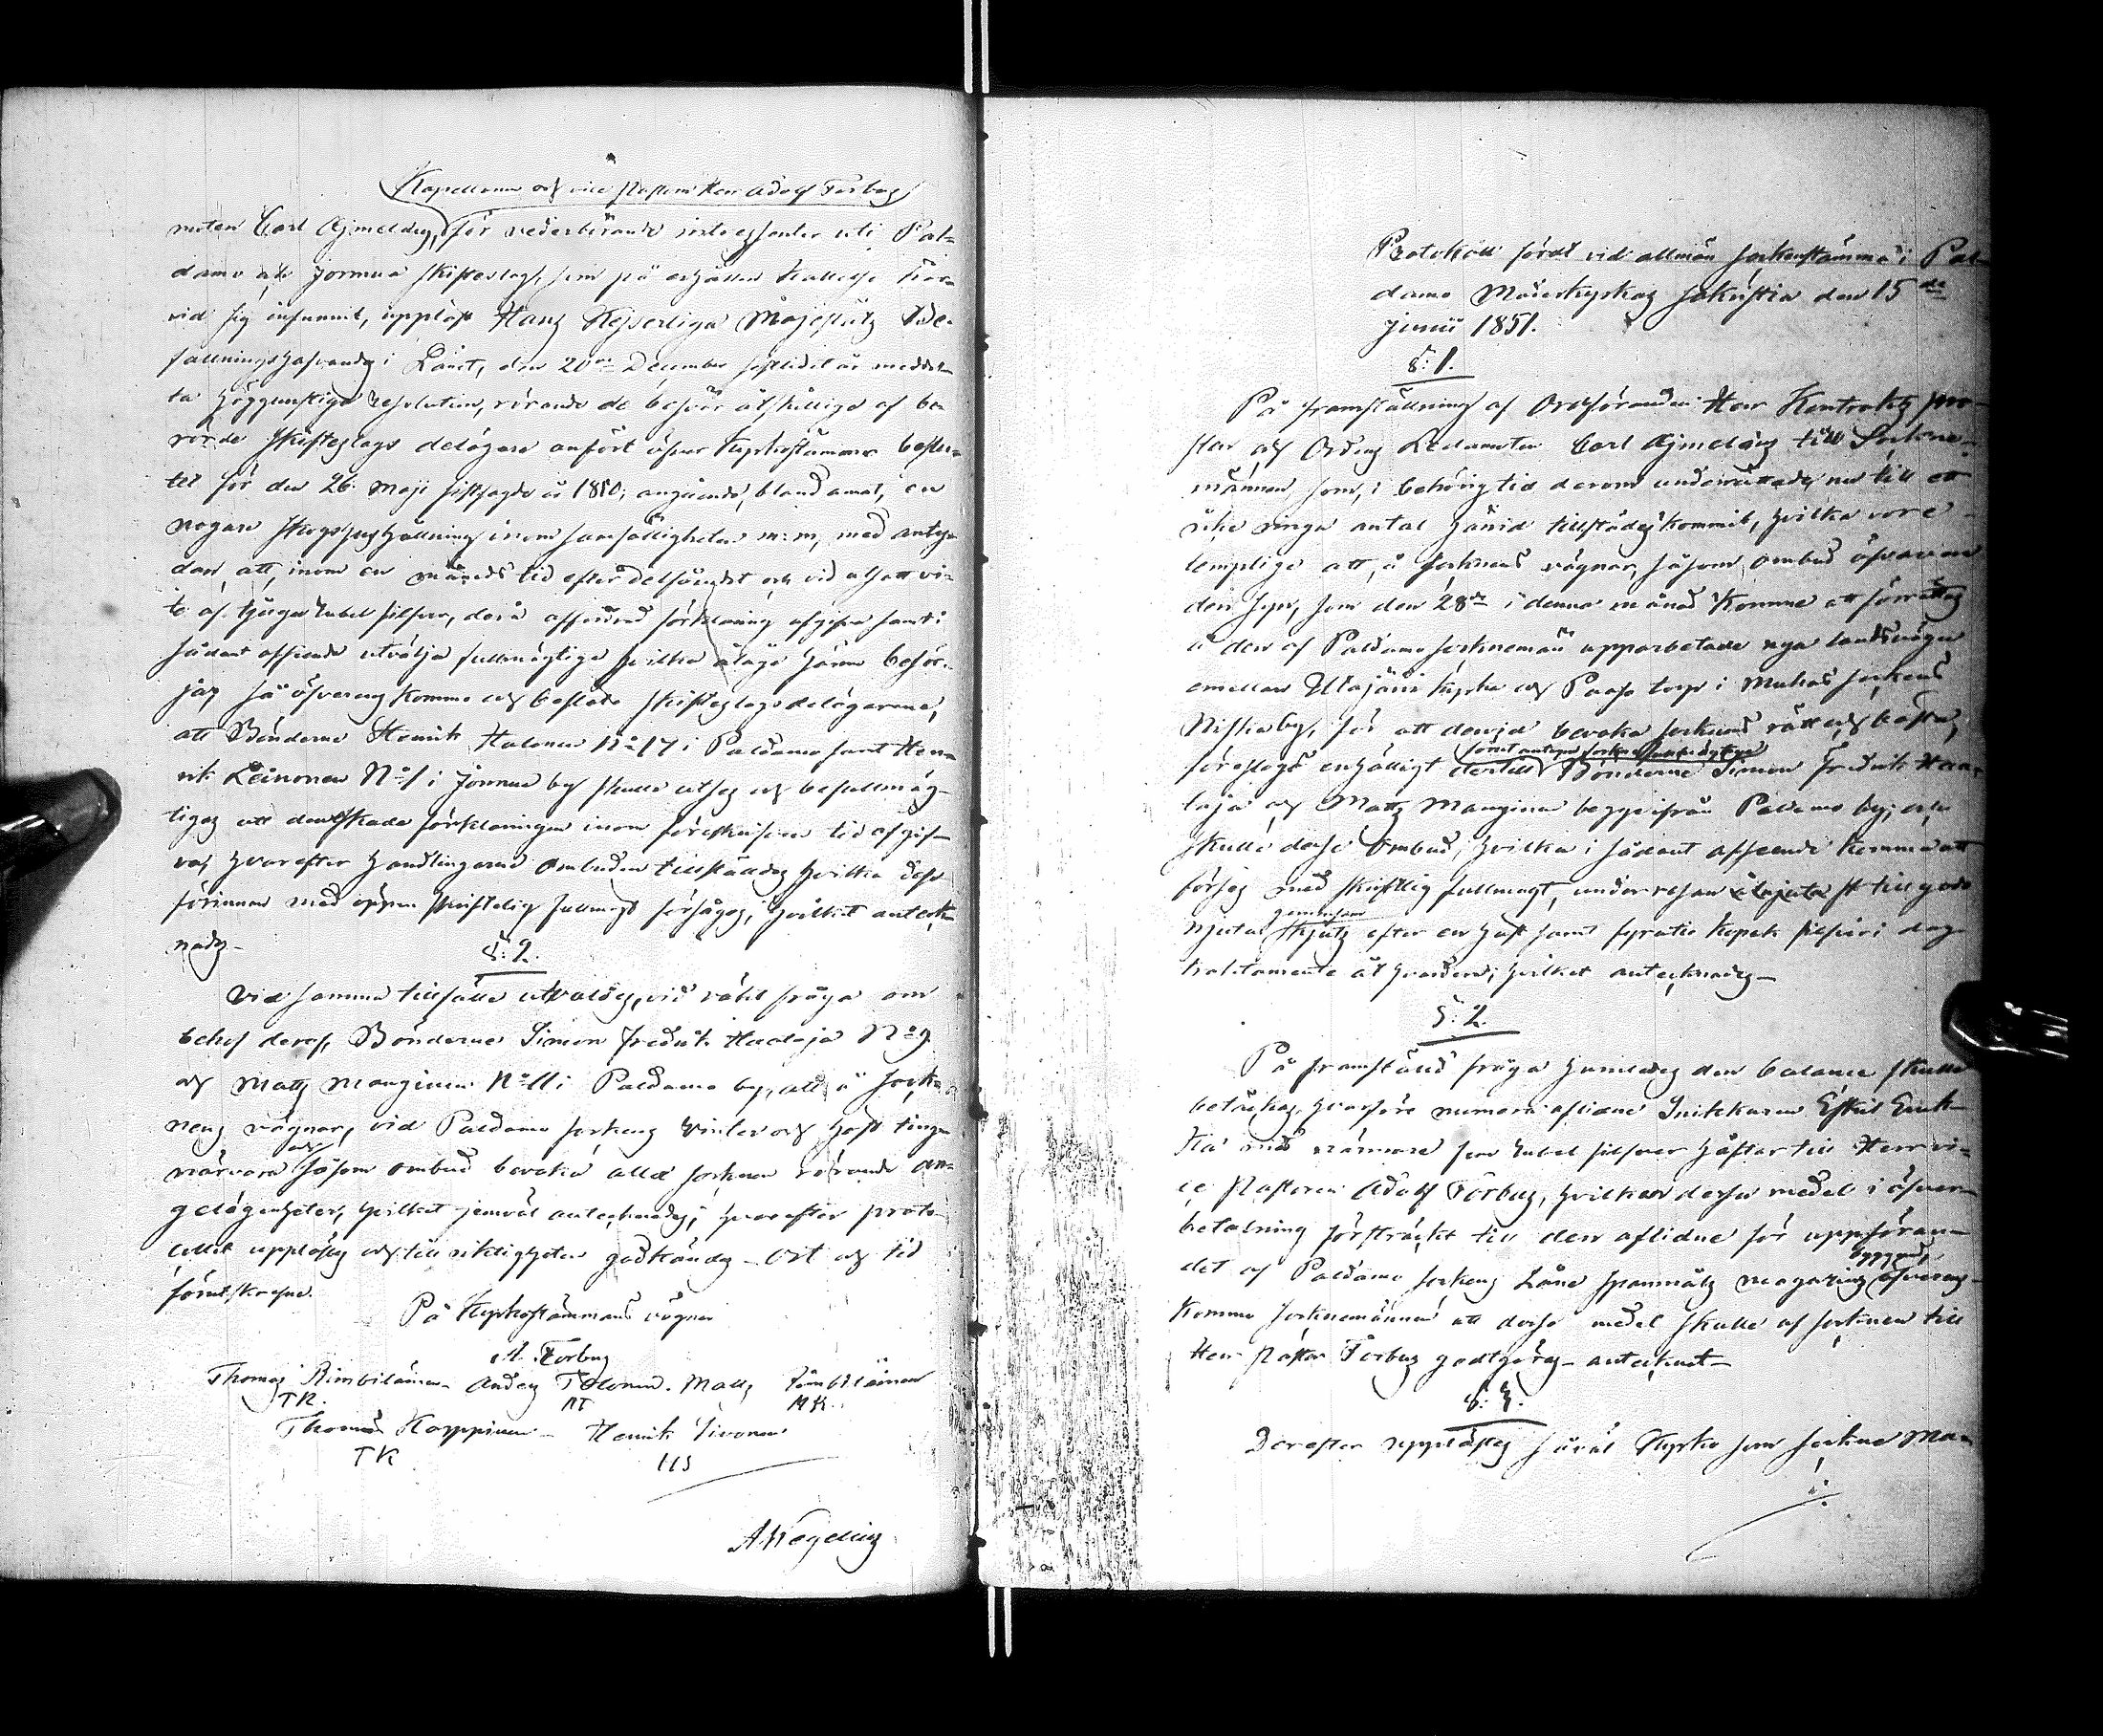 Kapellanen och vice Pastorn Herr Adolf Forbus
moten Carl Ajmelæus, för vederbörande interessenter uti Pal-
damo och Jormua skifteslag, som på erhållen kallelse här-
vid sig infunnit, uppläst Hans Kejserliga Majestäts Be-
fallningshafvandes i Länet, den 20de December sistledit år meddel-
ta höggunstiga resolution, rörande de besvär åtskillige af be-
rörde skifteslags delägare anfört öfver Kyrkostämmans beslu-
tet för den 26. Maji sistsagde år 1850; angående, bland annat, en
nogare skogshushållning inom samfälligheten m: m, med antyd-
dan, att, inom en månads tid efter delfåendet och vid alfatt vi-
te af tjugu rubel silfver, derå afsedd förklaring afgifva samt i
sådant afseende utvälja fullmägtige hvilka ålåge härom besör-
ja; så öfverenskommo och beslöto skifteslags delägarena,
att Bönderne Henrik Halonen No 17 i Paldamo samt Hen-
rik Leinonen No 1 i Jormua by skulle utses och befullmäg-
tigas att den förklaringen inom föreskrifven tid afgif-
va, hvarefter handlingarne ombuden tillställdes hvilka dess-
förinnan med öppen skriftelig fullmagt försågos; hvilket anteck-
nades-
§: 2.
Vid samma tillfälle utvaldes, vid väkt fråga om
behof deraf, Bönderne Simon Fredrik Haalaja No 9
och Matts Manginen No 11 i Paldamo by, att å Sock-
nens vägnar, vid Paldamo Sockens Vinter och Höst ting
närvara och såsom ombud bevaka alla Socknen rörande an-
gelägenheter, hvilket jemväl antecknades; hvarefter proto-
collet upplästes och till riktigheten godkändes - Ort och tid
förutskrefne.
På Kyrkostämmans vägnar
A. Forbus
Thomas Kimbiläinen- Anders Tolonen. Matts Kimbiläinen
TK. AT MK.
Thomas Karppinen- Henrik Sivonen
TK HS
A. Wegelius
Protokoll fördt vid allmän Sockenstämma i Pal-
damo Moderkyrkas sakristia den 15de
Junii 1851.
§: 1.
På framställning af Ordföranden Herr Kontrakts pro-
sten och Ordens Ledamoten Carl Ajmelæus till Sockne-
männen, som, i behörig tid derom underrättade, nu till ett
icke ringa antal härvid tillstädes kommit, hvilka vore
lemplige att, å Socknens vägnar, såsom ombud öfvervara
den syn, som den 28de i denna månad komme att förrättas
å den af Paldamo Socknemän upparbetade nya landsvägen
emellan Utajärvi kyrka och Paaso torp i Muhos Sockens
Niska by, för att dervid bevaka Socknens rätt och bästa,
föreslogs enhälligt dertill Bönderne Simon Fredrik Haa-
laja och Matts Manginen begge ifrån Paldamo by; och
skulle desse Ombud, hvilka i sådant afseende komme att
förses med skriftlig fullmagt, under resan till godo
njuta gemensam skjuts efter en häst samt fyratio kopek silfver i dag-
traktamente åt hvardera; hvilket antecknades-
§: 2.
På framställd fråga huruledes den balance skulle
betäckas, hvarföre numera aflidne Snikkaren Eskil Enck-
ka med närmare rubel silfver häftar till Herr vi-
ce Pastoren Adolf Forbus, hvilken desse medel i öfver-
betalning försträckt till den aflidne för uppföran-
det af Paldamo Sockens Låne Spannmåls magasins byggnad öfverens-
kommo Socknemännen att desse medel skulle af Socknen till
Herr Pastor Forbus godtgöras- antecknat-
§: 3.
Derefter upplästes såväl Kyrko som Sockne Ma-